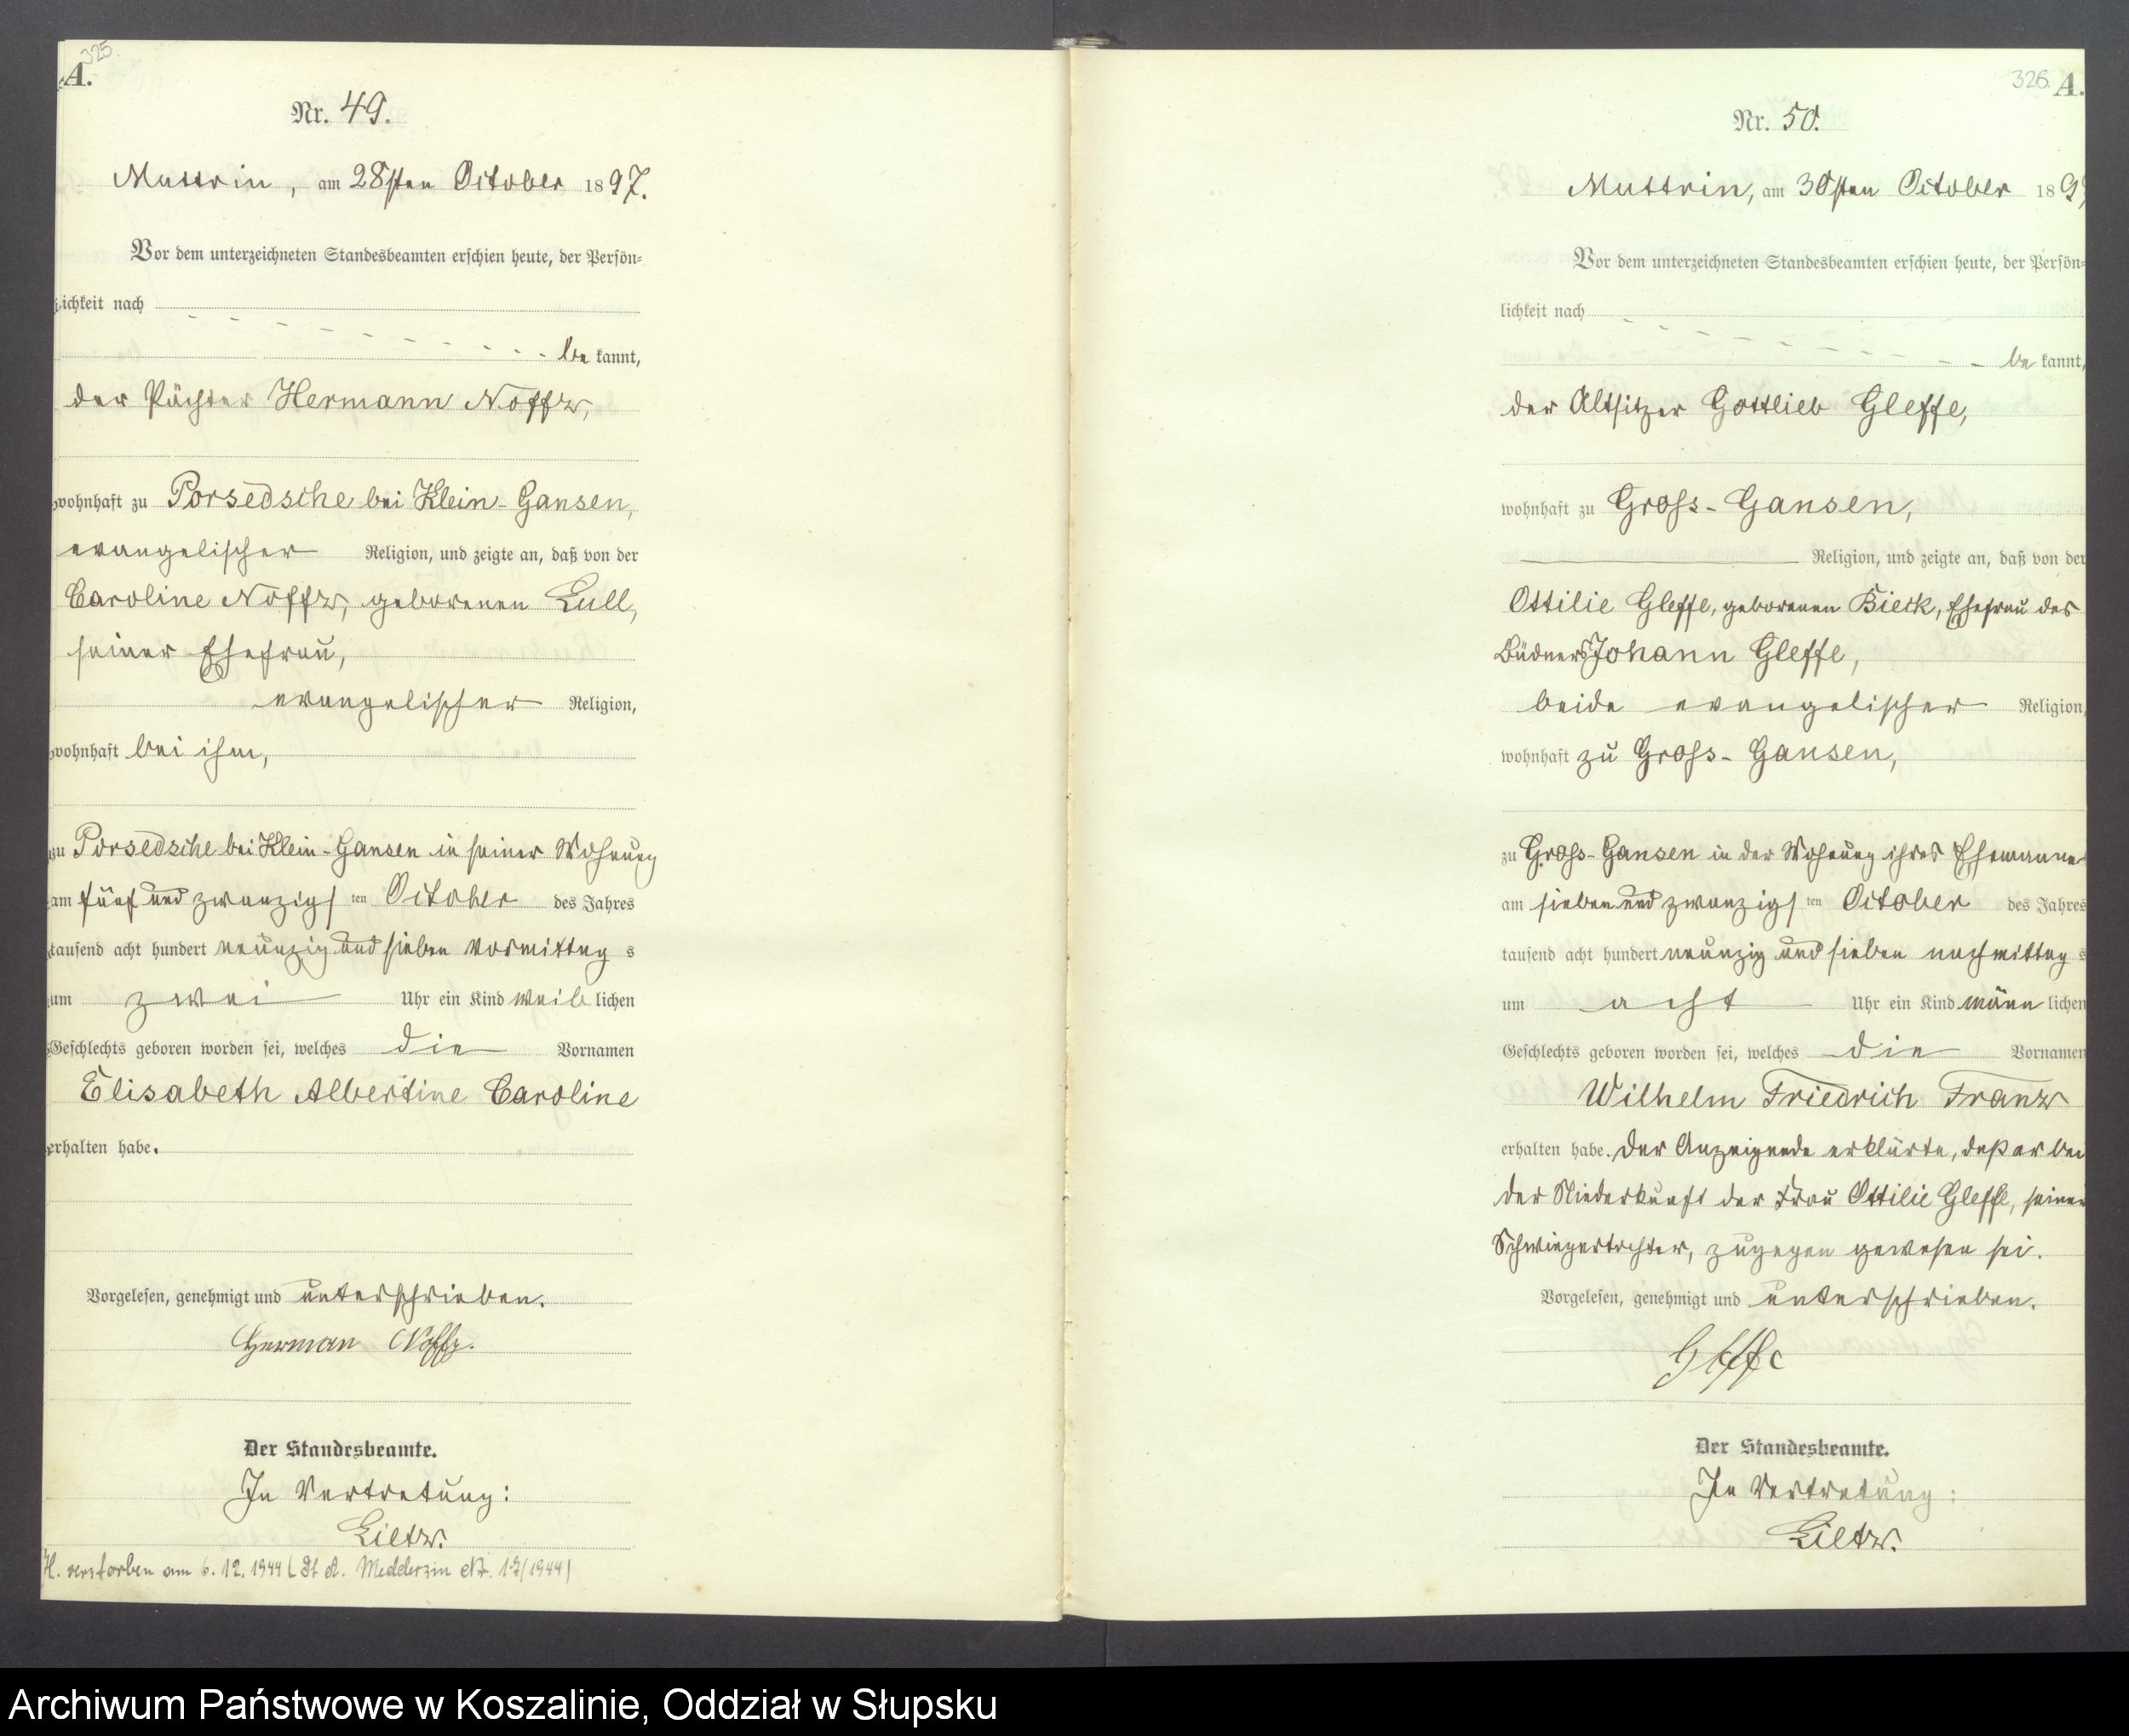 325.
A.
Nr. 49.
Muttrin, am 28sten October 1897.
Vor dem unterzeichneten Standesbeamten erschien heute, der Persön-
lichkeit nach
be kannt,
der Pächter Hermann Noffz,
wohnhaft zu Porsedsche bei Klein-Gansen,
evangelischer Religion, und zeigte an, daß von der
Caroline Noffz, geborenen Lull,
seiner Ehefrau,
evangelischer Religion,
wohnhaft bei ihm,
zu Porsedsche bei Klein-Gansen in seiner Wohnung
am fünf und zwanzigs ten October des Jahres
tausend acht hundert neunzig und sieben vormittag s
um zwei Uhr ein Kind weib lichen
Geschlechts geboren worden sei, welches die Vornamen
Elisabeth Albertine Caroline
erhalten habe.
Vorgelesen, genehmigt und unterschrieben.
Herman Noffz.
Der Standesbeamte.
In Vertretung:
Lietz.
H. verstorben am 6.12.1944 (St A. Medderzin Nr. 17/1944)
326. A.
Nr. 50.
Muttrin, am 30sten October 189
Vor dem unterzeichneten Standesbeamten erschien heute, der Persön-
lichkeit nach
be kannt,
der Altsitzer Gottlieb Gleffe,
wohnhaft zu Gross-Gansen,
Religion, und zeigte an, daß von der
Ottilie Gleffe, geborenen Bieck, Ehefrau des
Büdners Johann Gleffe,
beide evangelischer Religion,
wohnhaft zu Gross-Gansen,
zu Gross-Gansen in der Wohnung ihres Ehemannes
am sieben und zwanzigs ten October des Jahres
tausend acht hundert neunzig und sieben nachmittag s
um acht Uhr ein Kind männ lichen
Geschlechts geboren worden sei, welches die Vornamen
Wilhelm Friedrich Franz
erhalten habe. Der Anzeigende erklärte, daß er bei
der Niederkunft der Frau Ottilie Gleffe, seiner
Schwiegertochter, zugegen gewesen sei.
Vorgelesen, genehmigt und unterschrieben.
Gleffe
Der Standesbeamte.
In Vertretung:
Lietz.
Archiwum Państwowe w Koszalinie, Oddział w Słupsku